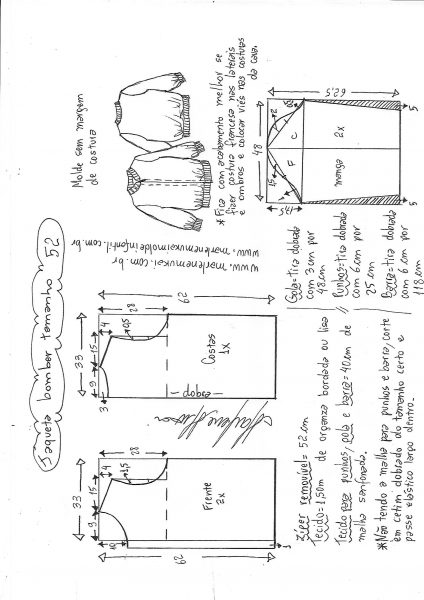 Jaqueta bomber tamanho 52
Molde sem margem
de costura
www.marlenemukai.com.br
www.marlenemukaimoldeinfantil.com.br
*Fica com acabamento melhor se
fizer costura francesa nas laterais
e ombros e colocar viés nas costuras
da cava.
33
9
15
4
10
1,5
28
62
Frente
2x
33
9
15
4
3
0,5
28
62
dobra
Costas
1x
48
62,5
17,5
F
C
manga
2x
5
5
Gola=tira dobrada
com 3cm por
48cm
Punhos=tira dobrada
com 6cm por
25cm
Barra=tira dobrada
com 6cm por
118cm
Zíper removível=52cm
Tecido=1,50m de organza bordada ou lisa
Tecido para punhos, gola e barra=40cm de
malha sanfonada.
*Não tendo a malha para punhos e barra, corte
em cetim dobrado do tamanho certo e
passe elástico largo dentro.